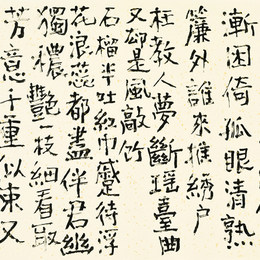 漸困倚孤眠清熟
簾外誰來推綉戶
枉教人夢斷瑤臺曲
又却是風敲竹
石榴半吐紅巾蹙待浮
花浪蕊都盡伴君幽
獨穠艷一枝細看取
芳意千重似束又